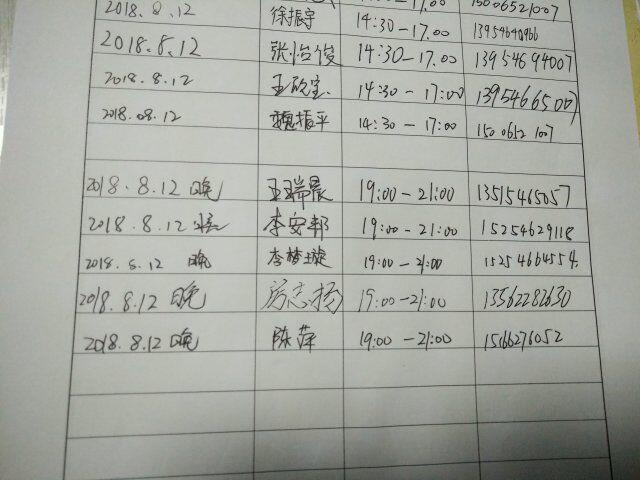 2018.8.12 徐振宇 14:30-17.00
2018.8.12 张怡俊 14:30-17.00 13954694007
2018.8.12 王欣宝 14:30-17:00 13954665007
2018.08.12 魏振平 14:30-17:00
2018.8.12 晚 王瑞晨 19:00-21:00 13515465057
2018.8.12 李安邦 19:00-21:00 15254629118
2018.8.12 晚 李梦璇 19:00-21:00 15254664554
2018.8.12 晚 房志扬 19:00-21:00 13562282630
2018.8.12 晚 陈萍 19:00-21:00 1566276052